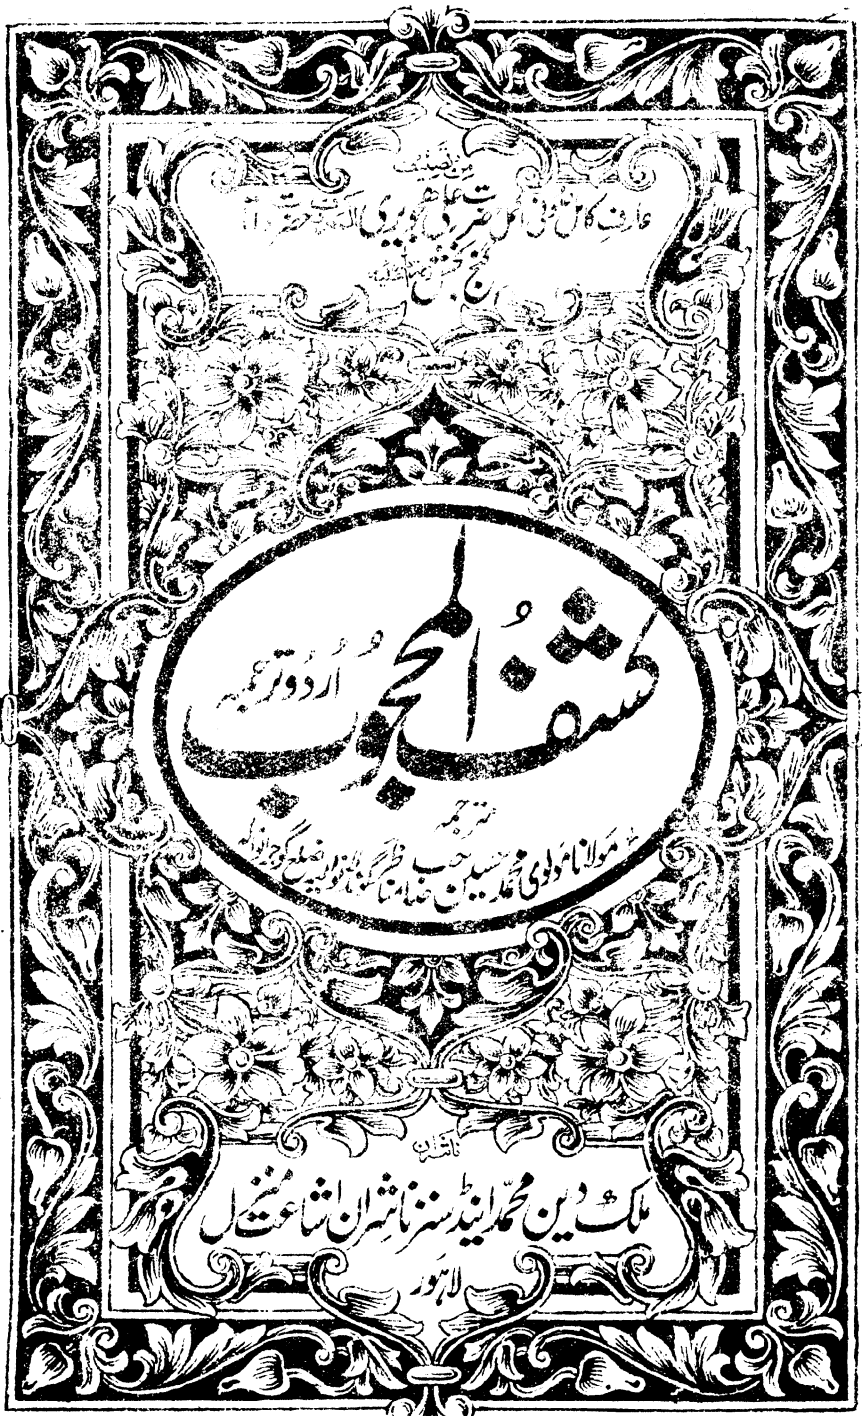 من تصنیف
عارف کامل صوفی اکمل حضرت علی ہجویری المعروف حضرت داتا
گنج بخش
کشف المحجوب
اُردو ترجمہ
مترجمہ
مولانا مولوی محمد حسین صاحب مناظر گوندلانوالہ ضلع گوجرانوالہ
ناشران
ملک دین محمد اینڈ سنز ناشران اشاعت منزل
لاہور